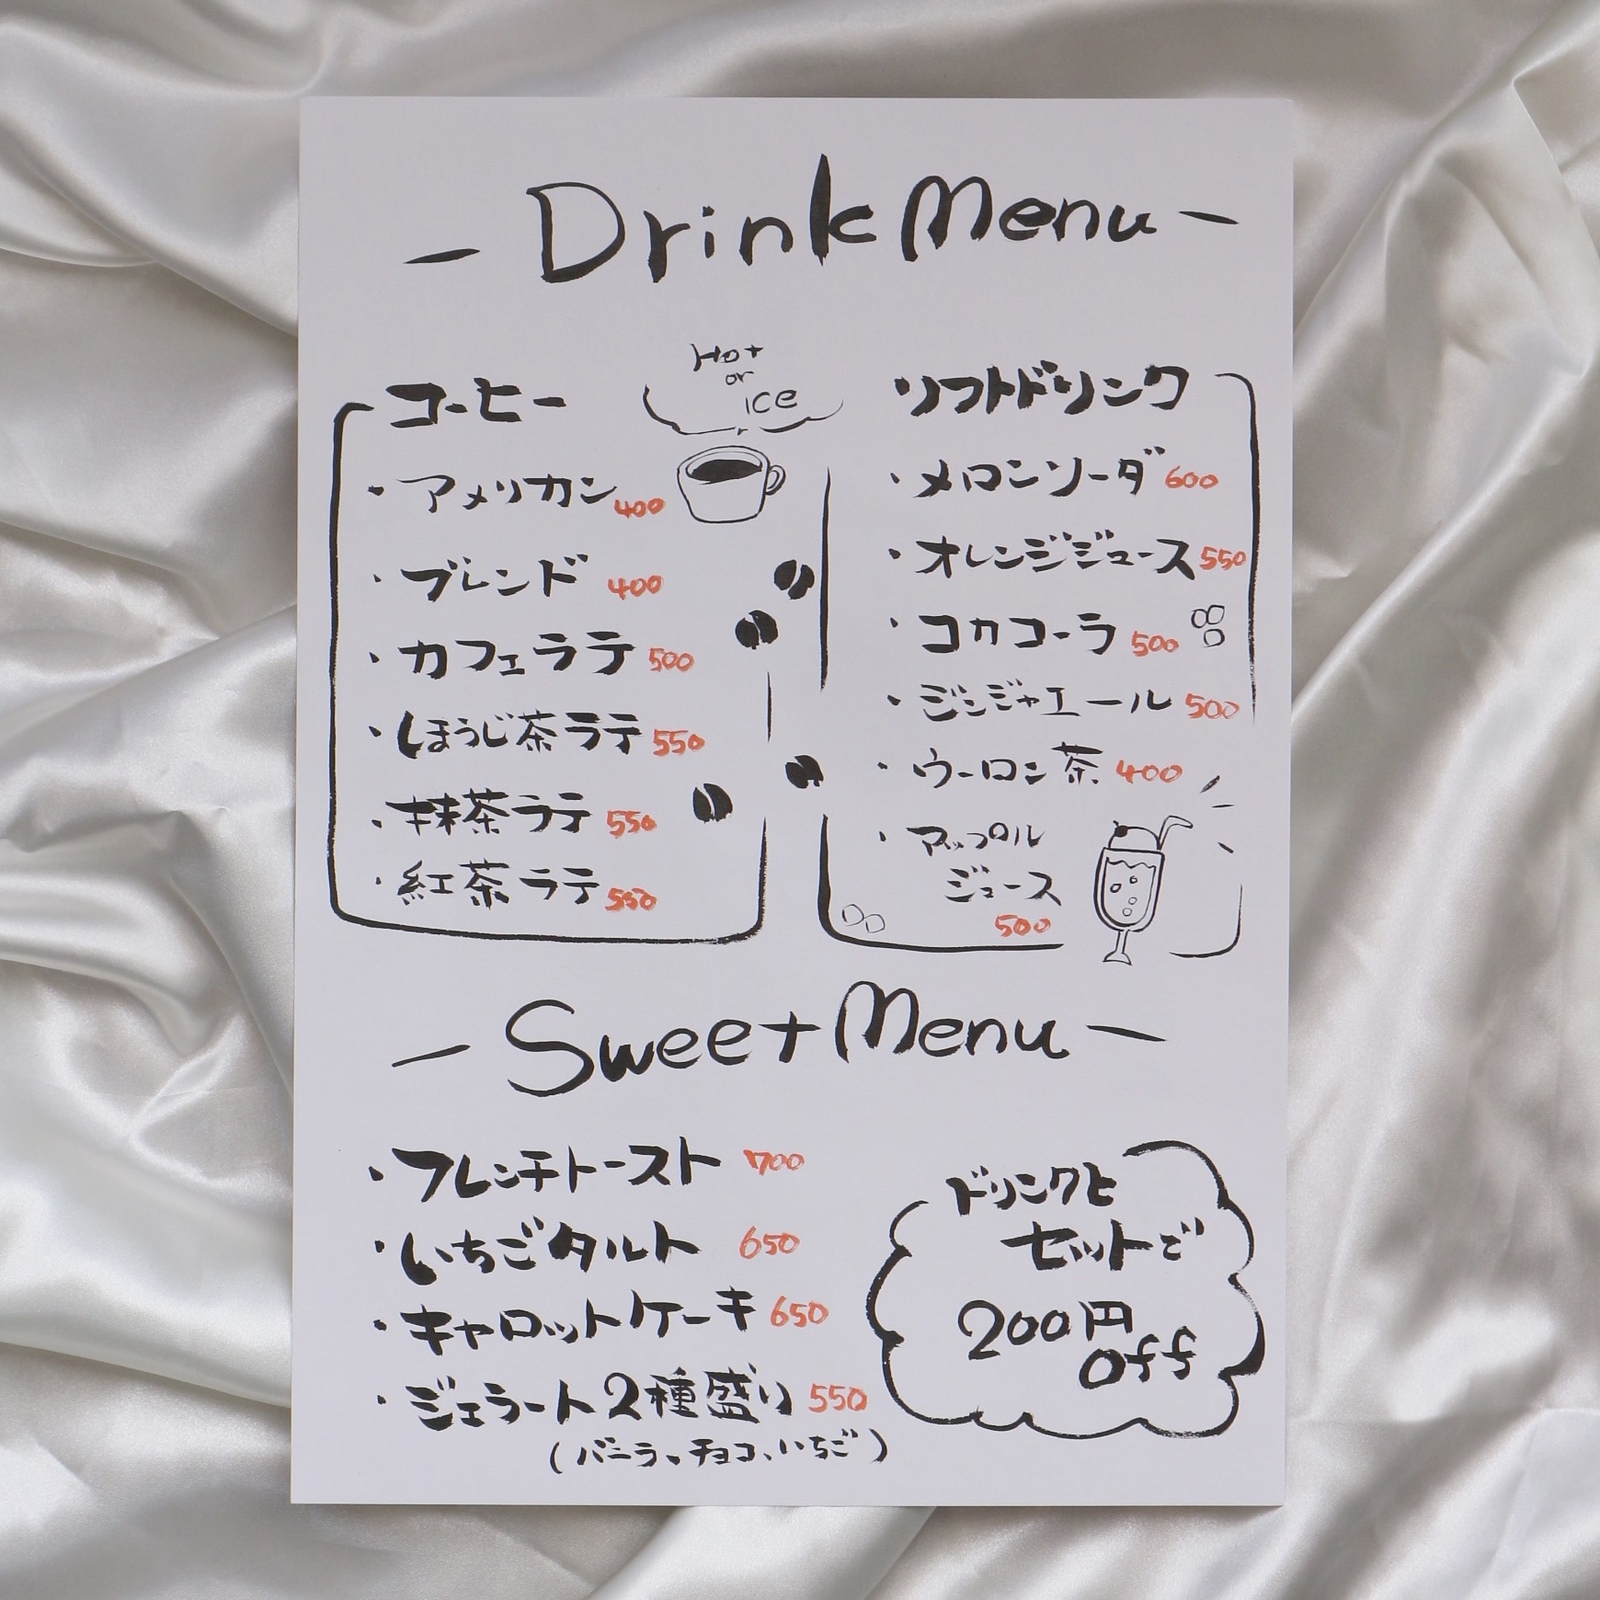 - Drink Menu -
Hot
or
ICE
コーヒー
・アメリカン 400
・ブレンド 400
・カフェラテ 500
・ほうじ茶ラテ 550
・抹茶ラテ 550
・紅茶ラテ 550
ソフトドリンク
・メロンソーダ 600
・オレンジジュース 550
・コカコーラ 500
・ジンジャエール 500
・ウーロン茶 400
・アップル
ジュース
500
- Sweet Menu -
・フレンチトースト 700
・いちごタルト 650
・キャロットケーキ 650
・ジェラート2種盛り 550
(バニラ、チョコ、いちご)
ドリンクと
セットで
200円
off